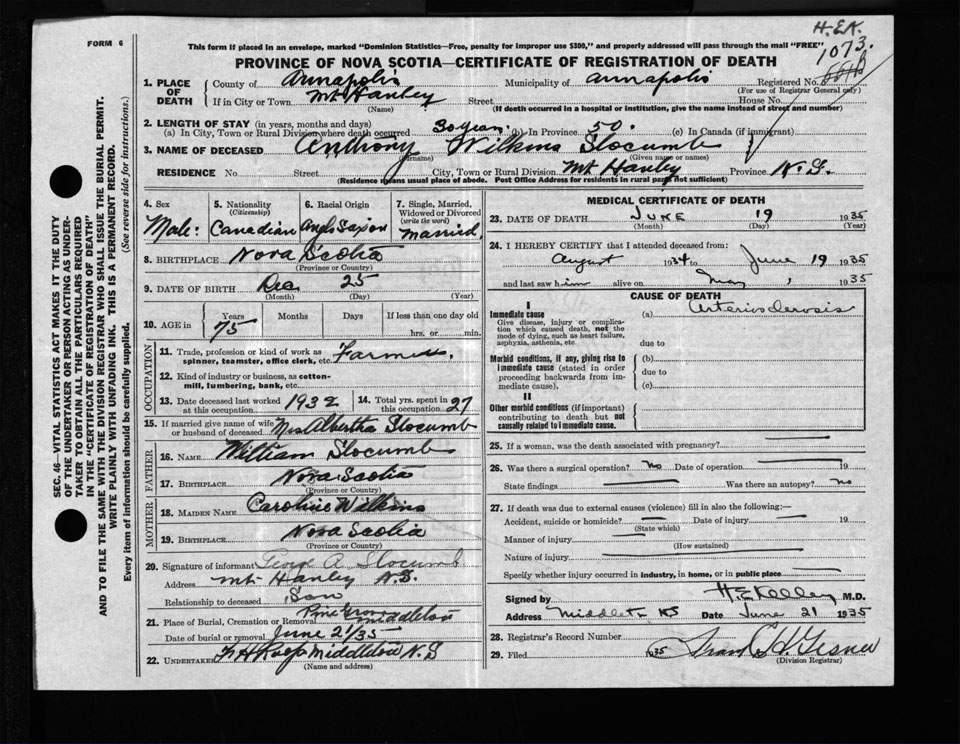 H.E.K.
FORM 6
1073.
This form if placed in an envelope, marked "Dominion Statistics—Free, penalty for improper use $300," and properly addressed will pass through the mail "FREE"
PROVINCE OF NOVA SCOTIA—CERTIFICATE OF REGISTRATION OF DEATH
1. PLACE OF DEATH County of Annapolis Municipality of Annapolis Registered No.
(For use of Registrar General only)
If in City or Town Mt Hanley Street House No.
(Name) (If death occurred in a hospital or institution, give the name instead of street and number)
2. LENGTH OF STAY (in years, months and days)
(a) In City, Town or Rural Division where death occurred 30 years. (b) In Province 50. (c) In Canada (if immigrant)
3. NAME OF DECEASED Anthony Wilkins Slocumb
(Surname) (Given name or names)
RESIDENCE No. Street City, Town or Rural Division Mt Hanley Province N.S.
(Residence means usual place of abode. Post Office Address for residents in rural parts not sufficient)
SEC. 46—VITAL STATISTICS ACT MAKES IT THE DUTY
OF THE UNDERTAKER OR PERSON ACTING AS UNDER-
TAKER TO OBTAIN ALL THE PARTICULARS REQUIRED
IN THE "CERTIFICATE OF REGISTRATION OF DEATH"
AND TO FILE THE SAME WITH THE DIVISION REGISTRAR WHO SHALL ISSUE THE BURIAL PERMIT.
WRITE PLAINLY WITH UNFADING INK. THIS IS A PERMANENT RECORD.
Every item of information should be carefully supplied. (See reverse side for instructions.)
4. Sex 5. Nationality (Citizenship) 6. Racial Origin 7. Single, Married, Widowed or Divorced (write the word)
Male: Canadian Anglo Saxon Married.
8. BIRTHPLACE Nova Scotia
(Province or Country)
9. DATE OF BIRTH Dec 25
(Month) (Day) (Year)
10. AGE in Years Months Days If less than one day old
75 hrs. or min.
OCCUPATION
11. Trade, profession or kind of work as spinner, teamster, office clerk, etc. Farmer.
12. Kind of industry or business, as cotton-mill, lumbering, bank, etc.
13. Date deceased last worked at this occupation 1932 14. Total yrs. spent in this occupation 27
15. If married give name of wife or husband of deceased Mrs Albertha Slocumb
FATHER
16. NAME William Slocumb
17. BIRTHPLACE Nova Scotia
(Province or Country)
MOTHER
18. MAIDEN NAME Caroline Wilkins
19. BIRTHPLACE Nova Scotia
(Province or Country)
20. Signature of informant A. Slocumb
Address Mt Hanley N.S.
Relationship to deceased Son
21. Place of Burial, Cremation or Removal Pine Grove Middleton
Date of burial or removal June 21/35
22. UNDERTAKER Middleton N.S
(Name and address)
MEDICAL CERTIFICATE OF DEATH
23. DATE OF DEATH June 19 1935
(Month) (Day) (Year)
24. I HEREBY CERTIFY that I attended deceased from:
August 1934 to June 19 1935
and last saw him alive on May , 1935
CAUSE OF DEATH
I
Immediate cause (a) Arteriosclerosis
Give disease, injury or complication which caused death, not the mode of dying, such as heart failure, asphyxia, asthenia, etc. due to
Morbid conditions, if any, giving rise to immediate cause (stated in order proceeding backwards from immediate cause). (b)
due to
(c)
II
Other morbid conditions (if important) contributing to death but not causally related to immediate cause.
25. If a woman, was the death associated with pregnancy?
26. Was there a surgical operation? No Date of operation 19
State findings Was there an autopsy? No
27. If death was due to external causes (violence) fill in also the following:—
Accident, suicide or homicide? Date of injury 19
(State which)
Manner of injury
(How sustained)
Nature of injury
Specify whether injury occurred in industry, in home, or in public place
Signed by H.E. Kelley M.D.
Address Middleton NS Date June 21 1935
28. Registrar's Record Number
29. Filed 1935
(Division Registrar)